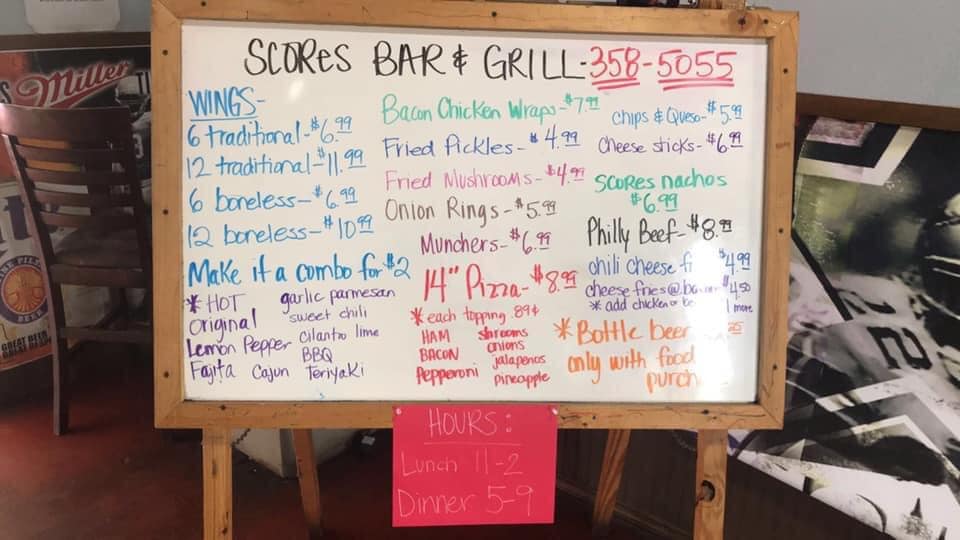 SCORES BAR & GRILL-358-5055
WINGS-
6 traditional-$6.99
12 traditional-$11.99
6 boneless-$6.99
12 boneless-$10.99
Make it a combo for $2
* HOT
Original
Lemon Pepper
Fajita
Cajun
garlic parmesan
sweet chili
Cilantro lime
BBQ
Teriyaki
Bacon Chicken Wraps-$7.99
Fried Pickles-$4.99
Fried Mushrooms-$4.99
Onion Rings-$5.99
Munchers-$6.99
14" Pizza-$8.99
* each topping .89¢
HAM
BACON
Pepperoni
shrooms
onions
jalapenos
pineapple
chips & Queso-$5.99
Cheese sticks-$6.99
Scores nachos
$6.99
Philly Beef-$8.99
chili cheese $4.99
cheese fries @ $4.50
* add chicken or 1 more
* Bottle beer
only with food
HOURS:
Lunch 11-2
Dinner 5-9
Miller
BEER
GREAT BEER